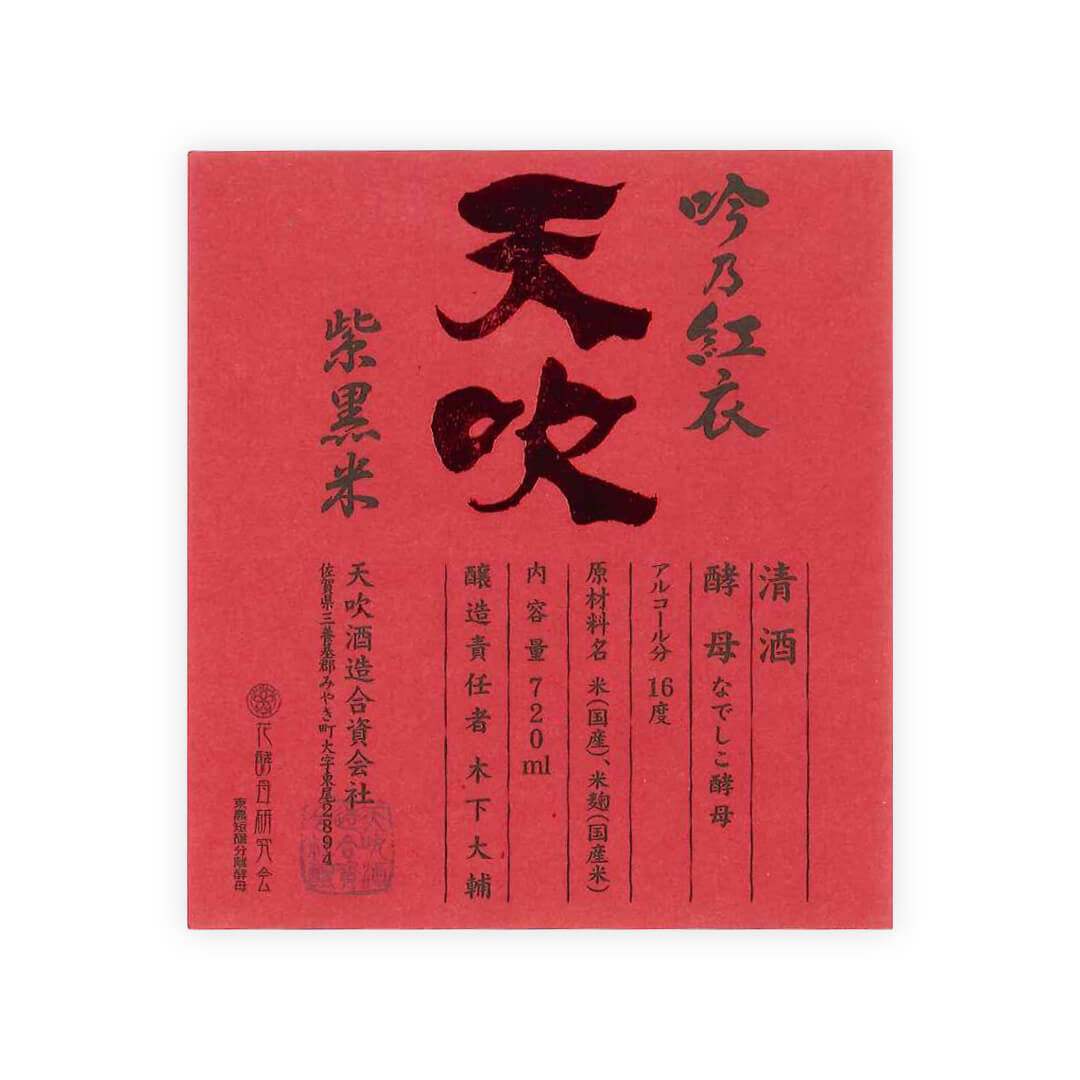 吟乃紅衣
天吹
紫黒米
清酒
酵母 なでしこ酵母
アルコール分 16度
原材料名 米(国産)、米麹(国産米)
内容量 720ml
醸造責任者 木下大輔
天吹酒造合資会社
佐賀県三養基郡みやき町大字東尾2894
花酵母研究会
東農短醸分離酵母